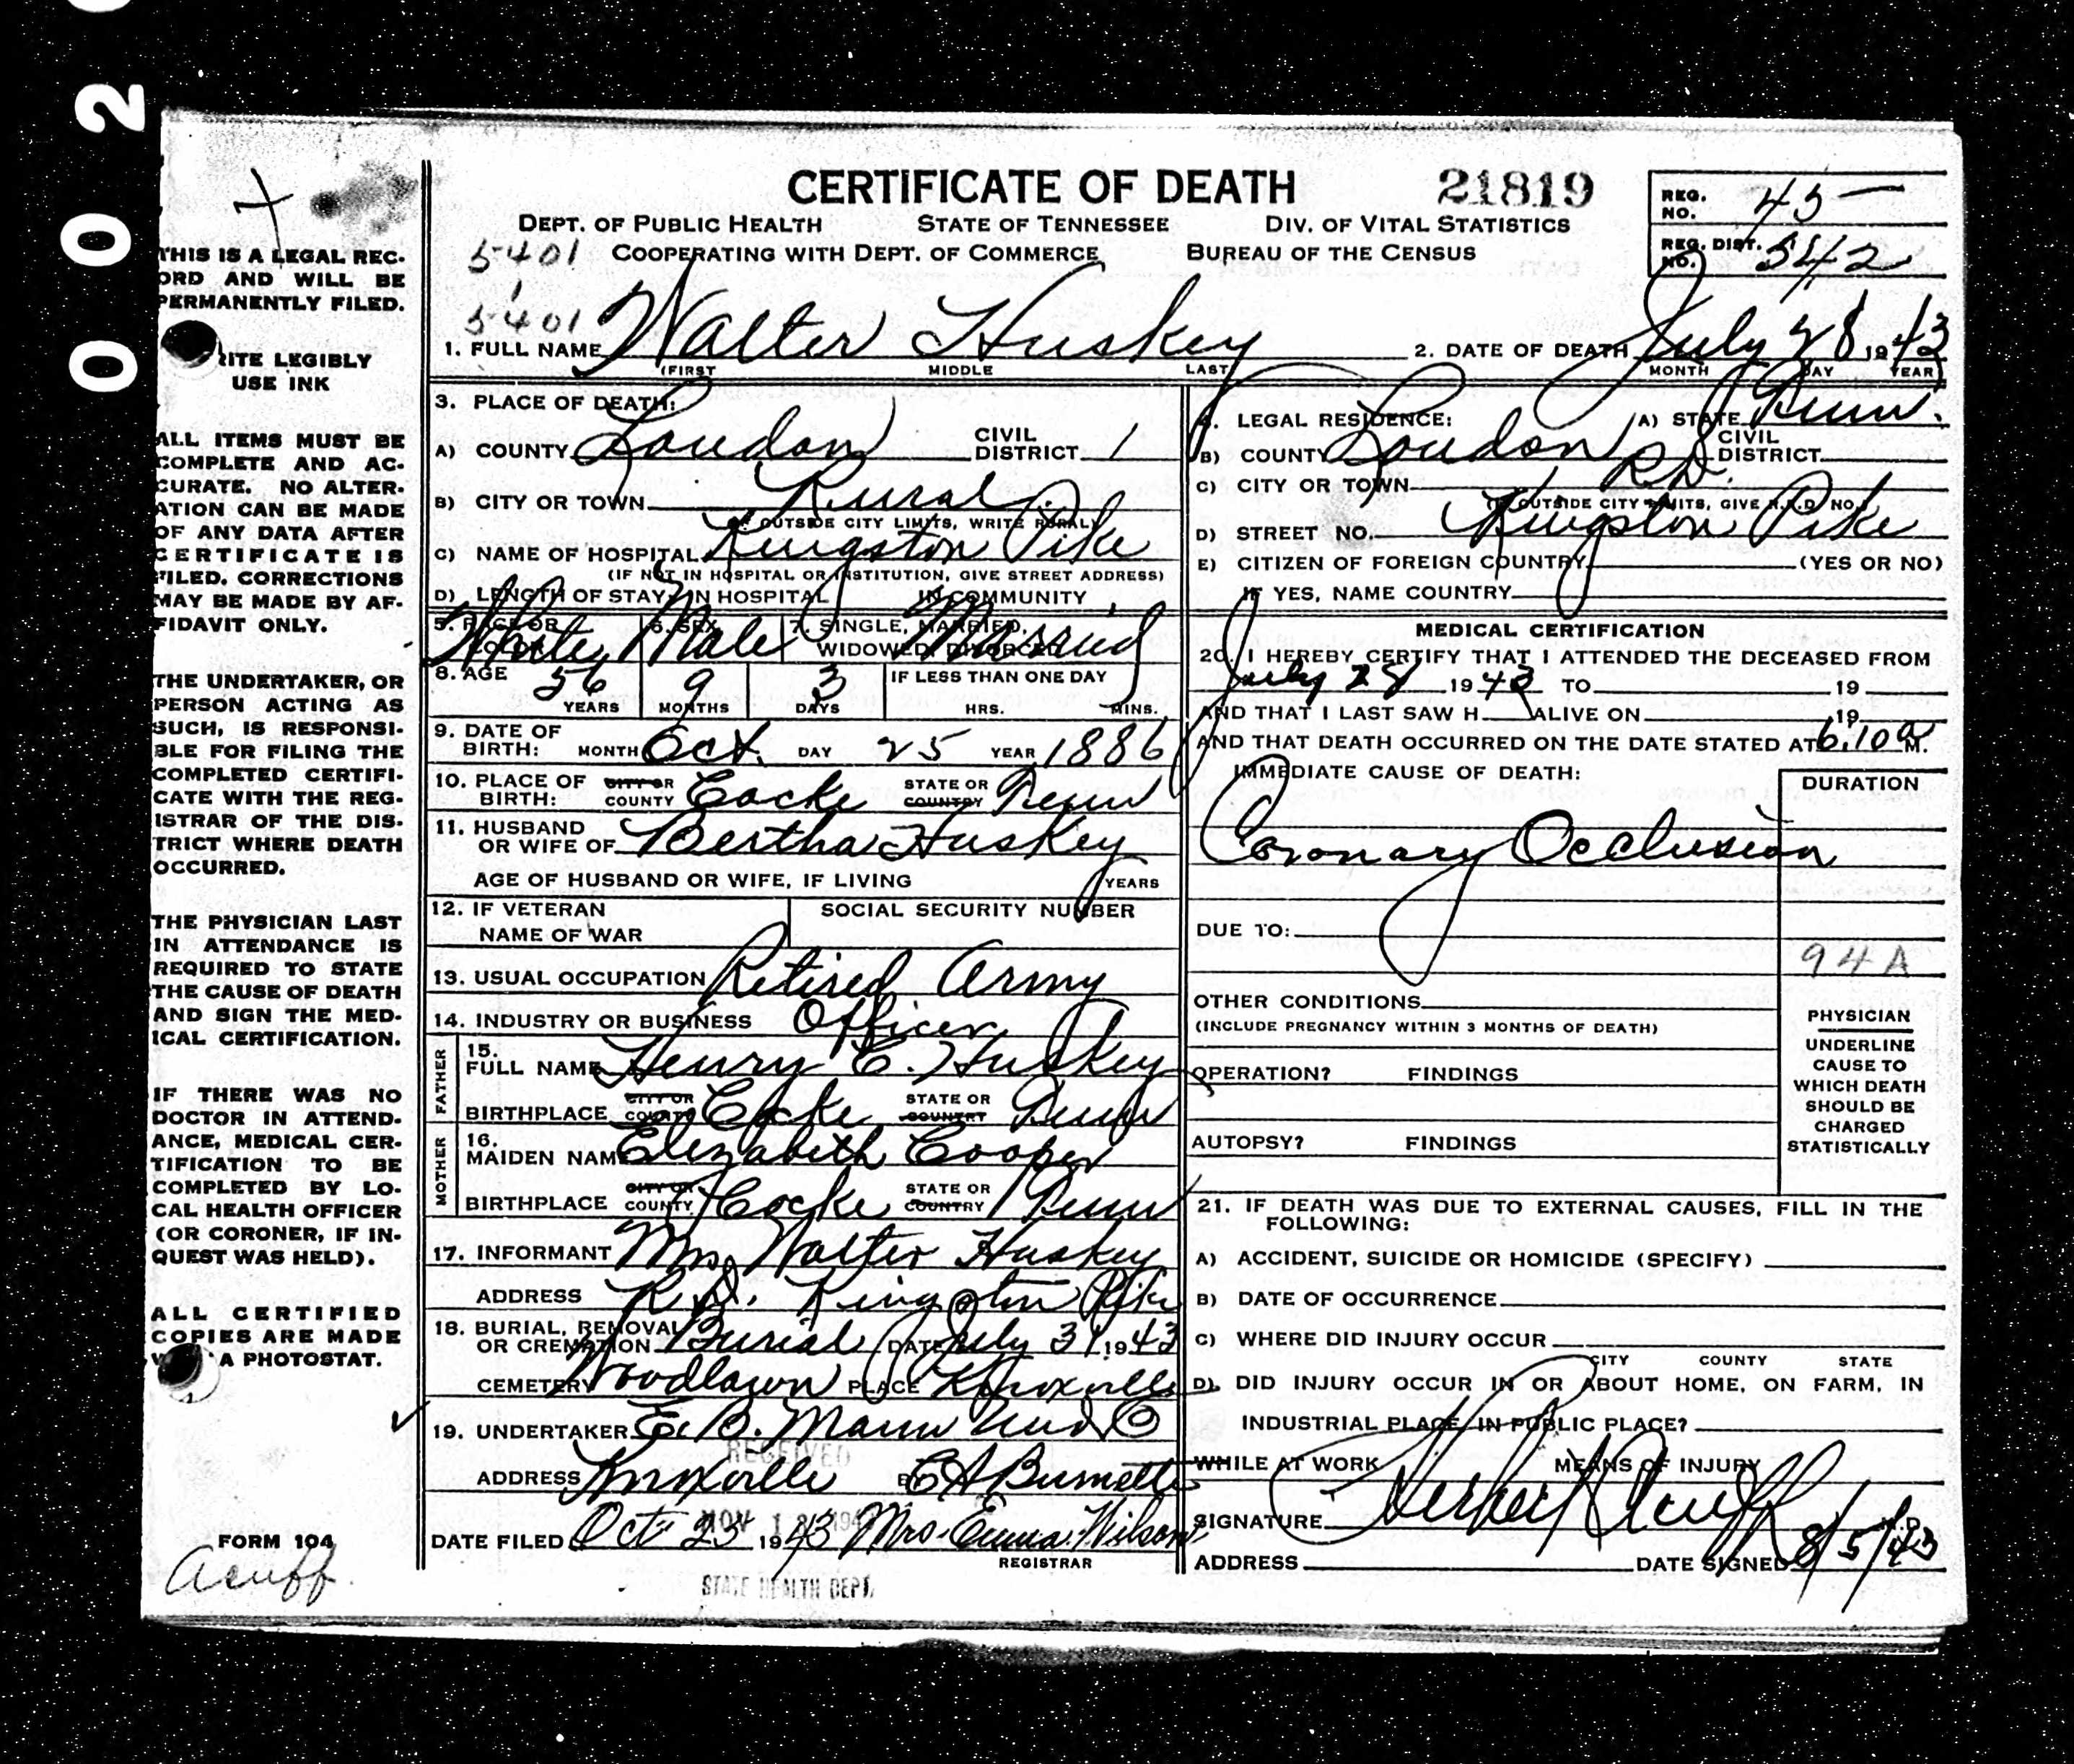 0 0 2
THIS IS A LEGAL REC-
ORD AND WILL BE
PERMANENTLY FILED.
RITE LEGIBLY
USE INK
ALL ITEMS MUST BE
COMPLETE AND AC-
CURATE. NO ALTER-
ATION CAN BE MADE
OF ANY DATA AFTER
CERTIFICATE IS
FILED. CORRECTIONS
MAY BE MADE BY AF-
FIDAVIT ONLY.
THE UNDERTAKER, OR
PERSON ACTING AS
SUCH, IS RESPONSI-
BLE FOR FILING THE
COMPLETED CERTIFI-
CATE WITH THE REG-
ISTRAR OF THE DIS-
TRICT WHERE DEATH
OCCURRED.
THE PHYSICIAN LAST
IN ATTENDANCE IS
REQUIRED TO STATE
THE CAUSE OF DEATH
AND SIGN THE MED-
ICAL CERTIFICATION.
IF THERE WAS NO
DOCTOR IN ATTEND-
ANCE, MEDICAL CER-
TIFICATION TO BE
COMPLETED BY LO-
CAL HEALTH OFFICER
(OR CORONER, IF IN-
QUEST WAS HELD).
ALL CERTIFIED
COPIES ARE MADE
A PHOTOSTAT.
FORM 104
Acuff
CERTIFICATE OF DEATH 21819
DEPT. OF PUBLIC HEALTH STATE OF TENNESSEE DIV. OF VITAL STATISTICS
5401 COOPERATING WITH DEPT. OF COMMERCE BUREAU OF THE CENSUS
REG. NO. 45
REG. DIST. NO. 542
5401
1. FULL NAME Walter Huskey 2. DATE OF DEATH July 28 1943
(FIRST MIDDLE LAST) MONTH DAY YEAR
3. PLACE OF DEATH:
A) COUNTY Loudon CIVIL DISTRICT 1
B) CITY OR TOWN Rural
(IF OUTSIDE CITY LIMITS, WRITE RURAL)
C) NAME OF HOSPITAL Kingston Pike
(IF NOT IN HOSPITAL OR INSTITUTION, GIVE STREET ADDRESS)
D) LENGTH OF STAY: IN HOSPITAL IN COMMUNITY
5. RACE OR COLOR White 6. SEX Male 7. SINGLE, MARRIED, WIDOWED, DIVORCED Married
8. AGE 56 YEARS 9 MONTHS 3 DAYS IF LESS THAN ONE DAY HRS. MINS.
9. DATE OF BIRTH: MONTH Oct. DAY 25 YEAR 1886
10. PLACE OF BIRTH: CITY OR COUNTY Cocke STATE OR COUNTRY Tenn
11. HUSBAND OR WIFE OF Bertha Huskey
AGE OF HUSBAND OR WIFE, IF LIVING YEARS
12. IF VETERAN NAME OF WAR SOCIAL SECURITY NUMBER
13. USUAL OCCUPATION Retired Army
14. INDUSTRY OR BUSINESS Officer
FATHER
15. FULL NAME Henry E. Huskey
BIRTHPLACE CITY OR COUNTY Cocke STATE OR COUNTRY Tenn
MOTHER
16. MAIDEN NAME Elizabeth Cooper
BIRTHPLACE CITY OR COUNTY Cocke STATE OR COUNTRY Tenn
17. INFORMANT Mrs. Walter Huskey
ADDRESS R.D. Kingston Pike
18. BURIAL, REMOVAL OR CREMATION Burial DATE July 31 1943
CEMETERY Woodlawn PLACE Knoxville
19. UNDERTAKER E. B. Mann Und Co
RECEIVED
ADDRESS Knoxville BY E A Burnette
DATE FILED Oct 23 1943 Mrs. Emma Wilson
NOV 1
REGISTRAR
STATE HEALTH DEPT.
4. LEGAL RESIDENCE: A) STATE Tenn.
B) COUNTY Loudon CIVIL DISTRICT
C) CITY OR TOWN R.D.
(IF OUTSIDE CITY LIMITS, GIVE R.F.D. NO.)
D) STREET NO. Kingston Pike
E) CITIZEN OF FOREIGN COUNTRY (YES OR NO)
IF YES, NAME COUNTRY
MEDICAL CERTIFICATION
20. I HEREBY CERTIFY THAT I ATTENDED THE DECEASED FROM
July 28 1943 TO 19
AND THAT I LAST SAW H ALIVE ON 19
AND THAT DEATH OCCURRED ON THE DATE STATED AT 6:10 a M.
IMMEDIATE CAUSE OF DEATH: DURATION
Coronary Occlusion
DUE TO:
94A
OTHER CONDITIONS
(INCLUDE PREGNANCY WITHIN 3 MONTHS OF DEATH)
OPERATION? FINDINGS
AUTOPSY? FINDINGS
PHYSICIAN
UNDERLINE
CAUSE TO
WHICH DEATH
SHOULD BE
CHARGED
STATISTICALLY
21. IF DEATH WAS DUE TO EXTERNAL CAUSES, FILL IN THE
FOLLOWING:
A) ACCIDENT, SUICIDE OR HOMICIDE (SPECIFY)
B) DATE OF OCCURRENCE
C) WHERE DID INJURY OCCUR
CITY COUNTY STATE
D) DID INJURY OCCUR IN OR ABOUT HOME, ON FARM, IN
INDUSTRIAL PLACE, IN PUBLIC PLACE?
WHILE AT WORK MEANS OF INJURY
SIGNATURE Herbert Acuff M.D.
ADDRESS DATE SIGNED 8/5/43